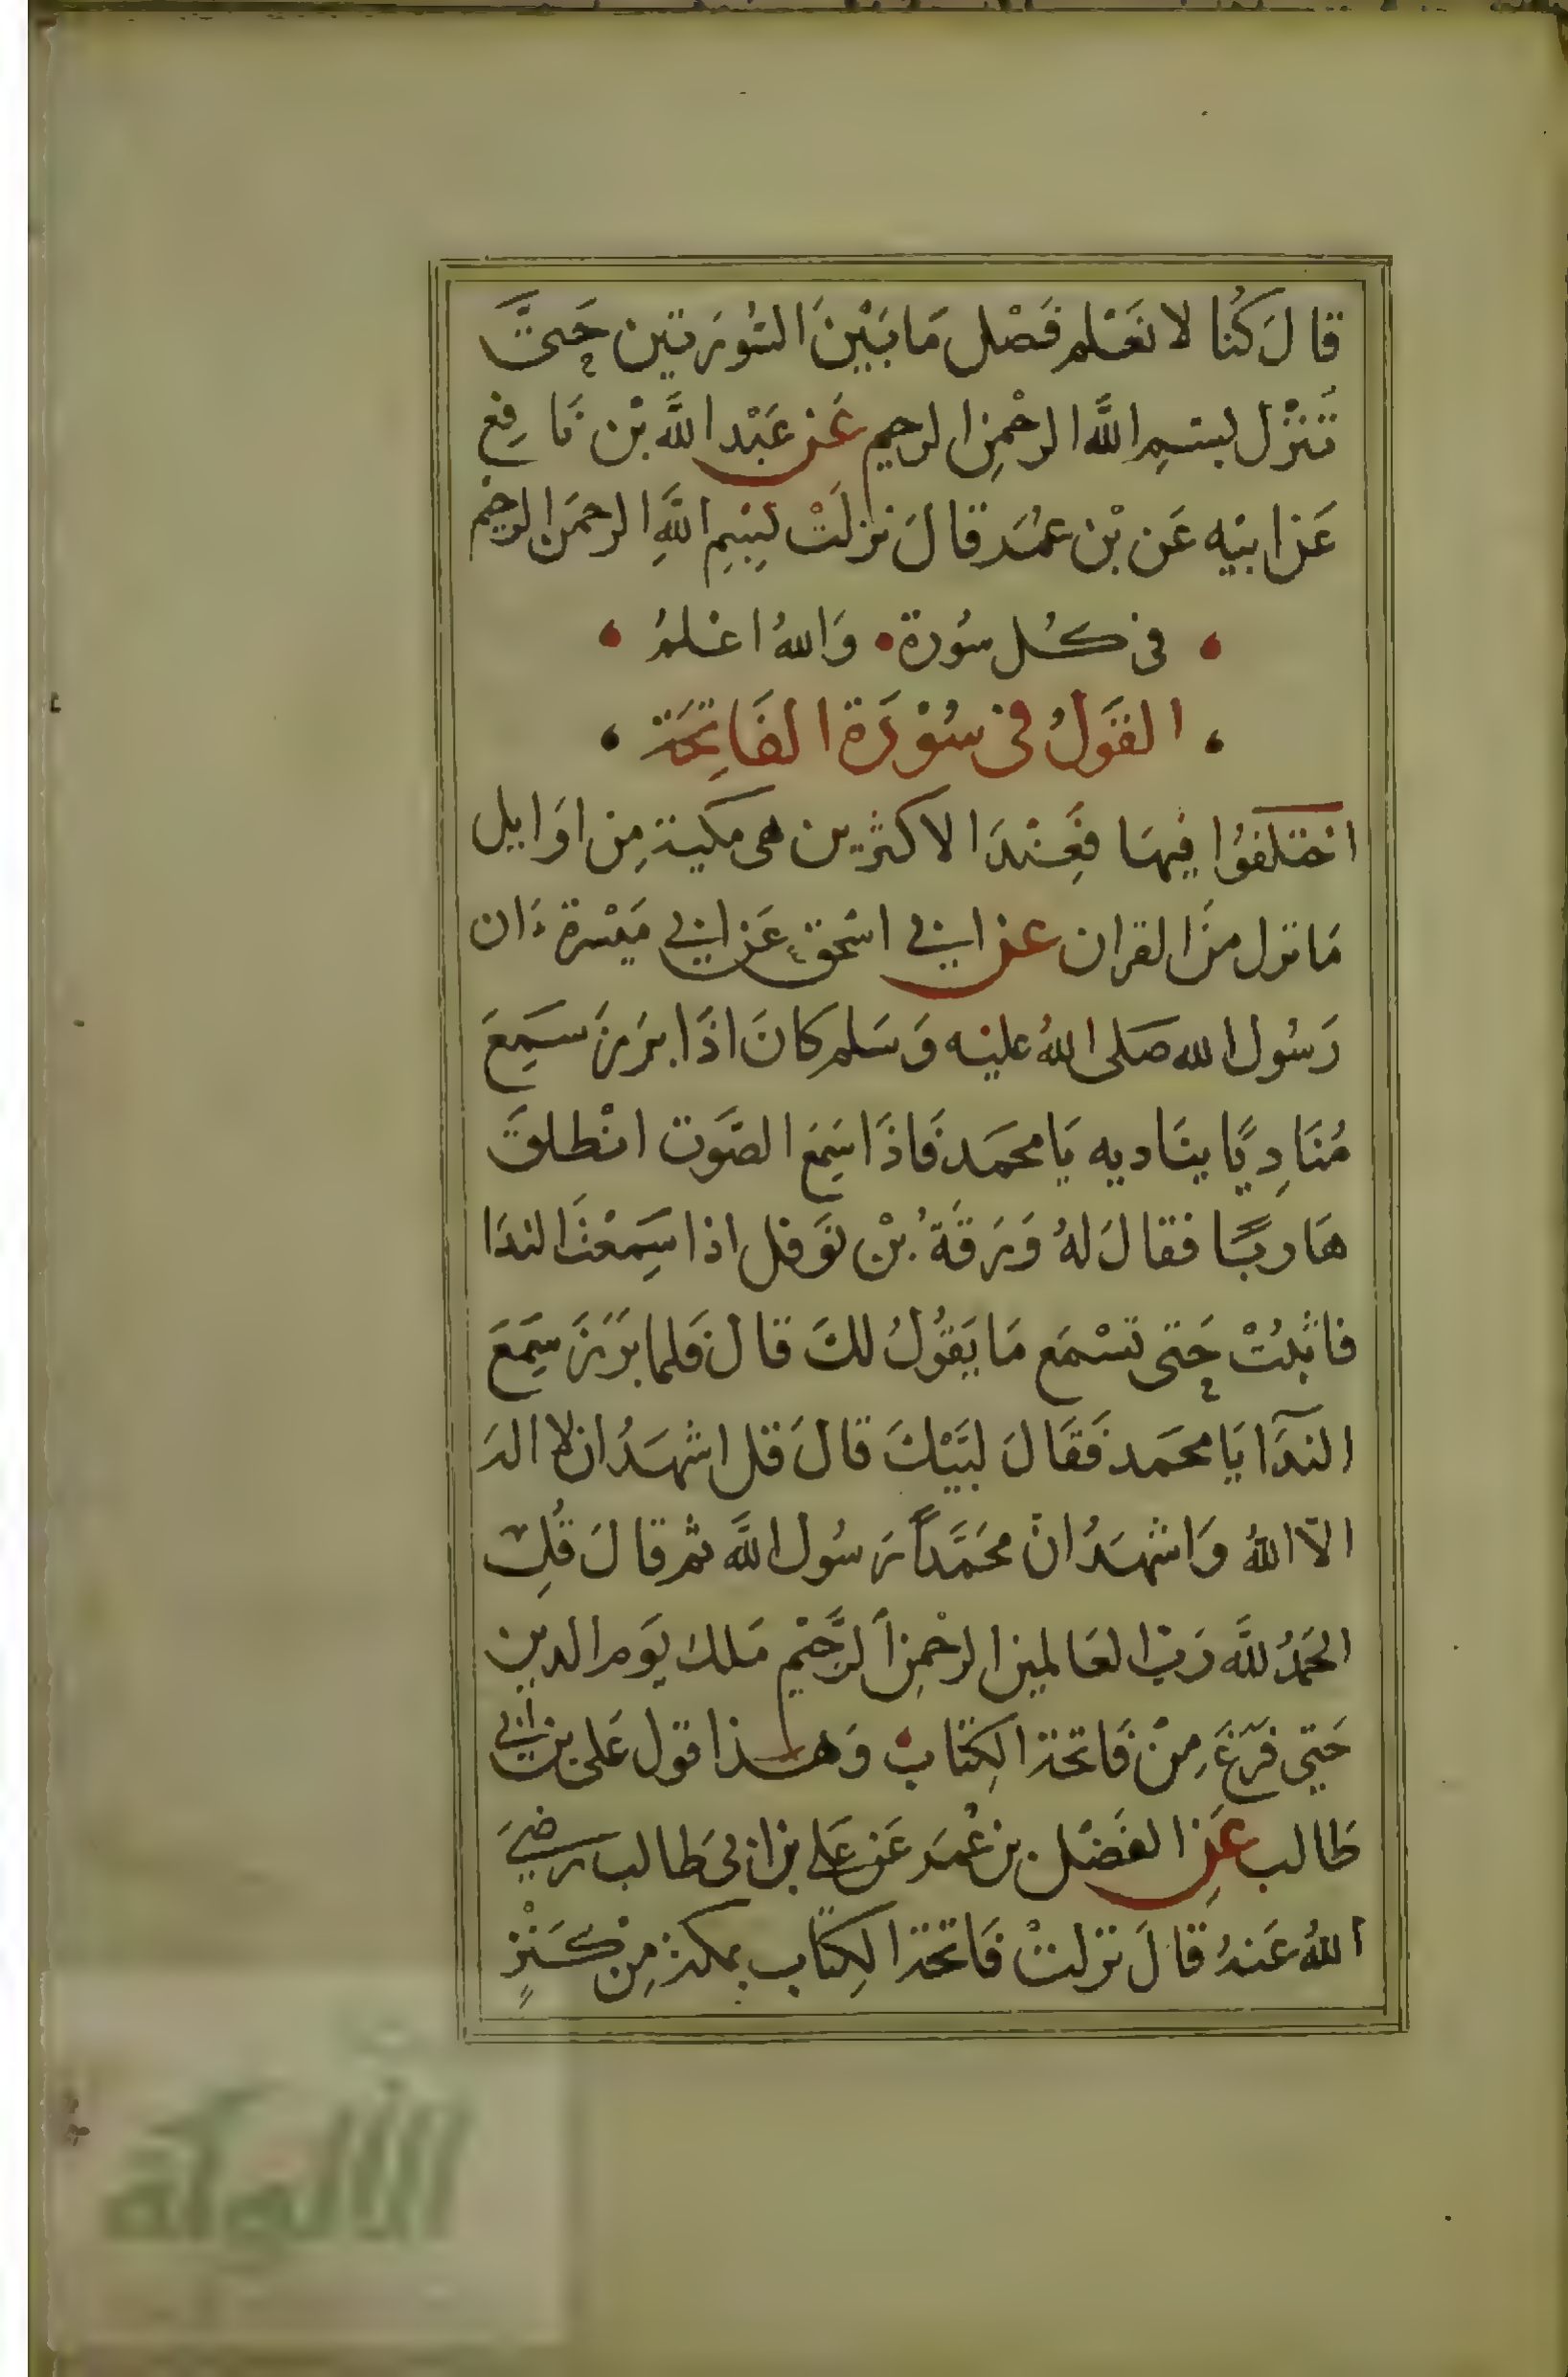 قَالَ كُنا لا نَعْلم فَصْل مَا بَيْنَ السُّورَتين حَتَّى
تَنْزل بسْمِ اللَّه الرحْمنِ الرحيم عَن عَبْد اللَّه بْن نَافِع
عَن ابيْه عَن بْن عمُرَ قَالَ نزلَتْ بِسْمِ اللَّهِ الرحمَن الرحِيم
في كُل سُورة وَاللهُ اعْلمُ
القَولُ في سُوْرَة الفَاتِحَة
اختلفوُا فيهَا فعِنْدَ الاكثرين هى مكية مِن اوَايل
مَا نزل منَ القران عَن ابي اسْحق عَن ابي مَيْسرة ان
رَسُول الله صَلى اللهُ عليْه وَسَلم كانَ اذَا برَزَ سَمِعَ
مُنَادِيًا ينَاديه يَا محمَد فَاذَا سَمِعَ الصَّوت انْطلقَ
هَاربًا فقالَ لهُ وَرَقَةُ بْن نَوفل اذا سَمِعْتَ الندَا
فاثبُتْ حَتى تسْمَع مَا يَقُولُ لكَ قال فَلما برَزَ سَمِعَ
الندَآ يَا محمَد فَقَالَ لبَيْكَ قالَ قل اشهَدُ ان لا اله
الاّ اللهُ وَاشهَدُ انّ محَمَّداً رَسُول اللَّه ثم قالَ قُلِ
الحَمْدُ للَّه رَبّ العَالمين الرحْمنِ الرَّحيْم مَلك يَوم الدين
حَتي فَرَغَ مِنْ فَاتحة الكِتَاب وَهذا قول عَلي بن ابي
طَالب عَنِ الفَضْل بن عُمَر عَن عَلي بن ابى طَالب رَضيَ
اللهُ عَنهُ قَالَ نزلتْ فَاتحة الكِتَاب بمكة مِنْ كَنْزٍ
الألوكة